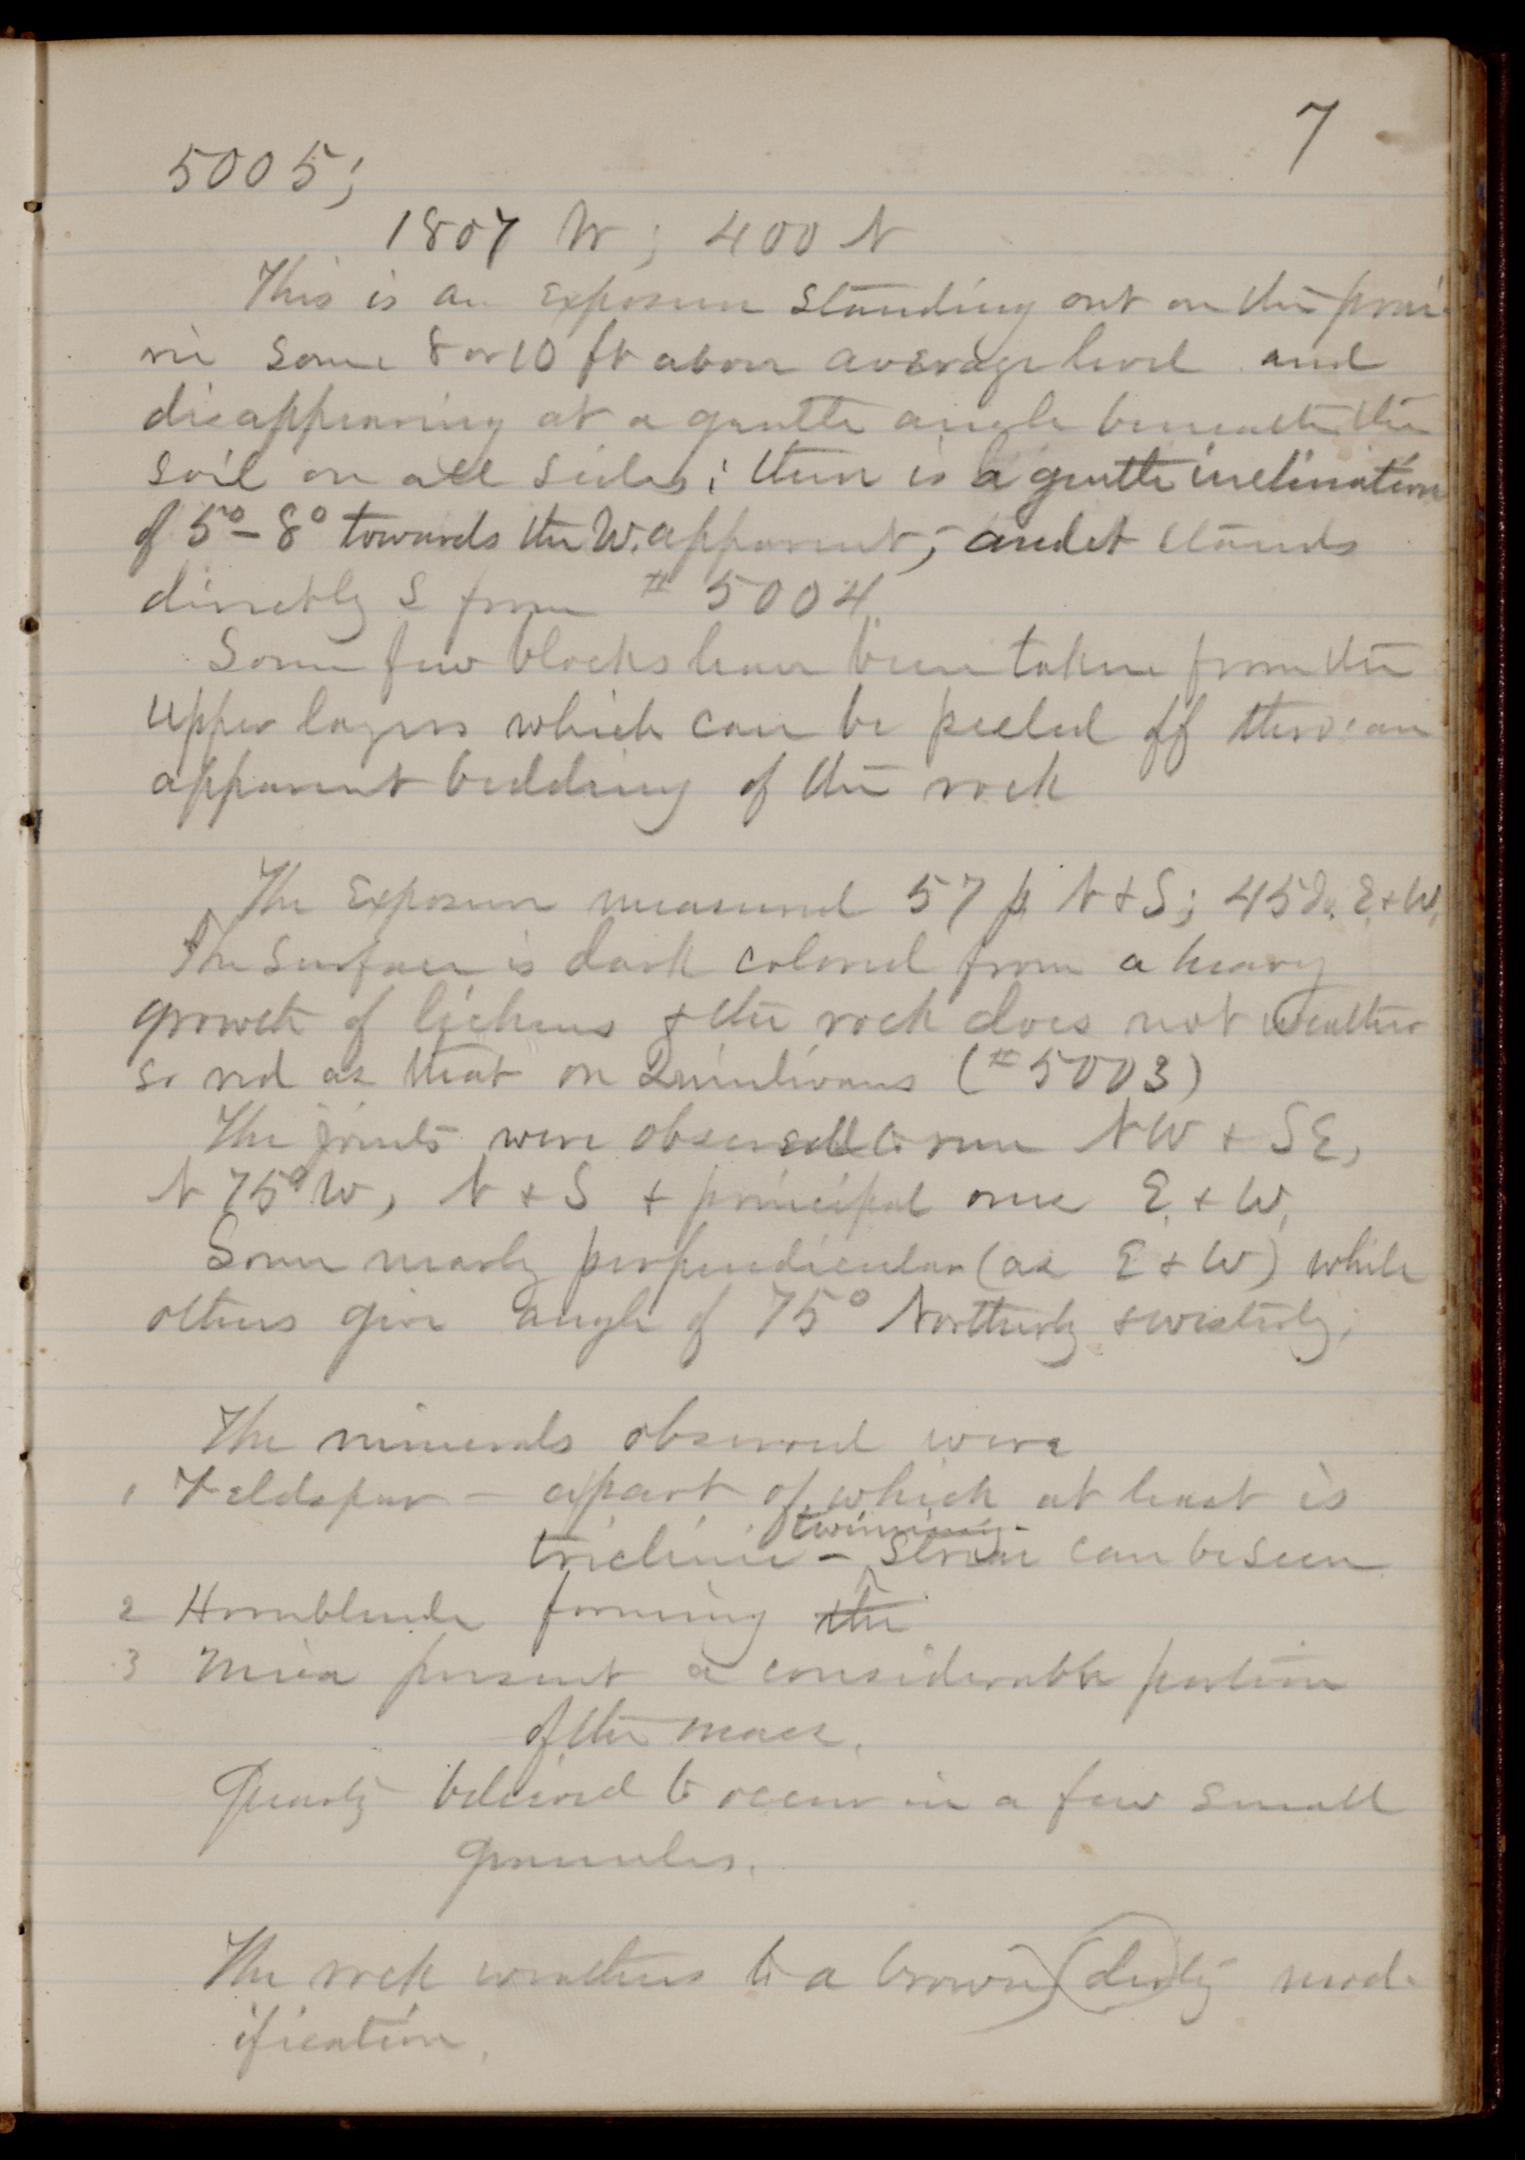 7
5005;
1807 W; 400 N
This is an exposure standing out on the prai-
rie some 8 or 10 ft above average level and
disappearing at a gentle angle beneath the
soil on all sides; there is a gentle inclination
of 5° - 8° towards the W. apparent, and it stands
directly S from # 5004.
Some few blocks have been taken from the
upper layers which can be peeled off there is an
apparent bedding of the rock
The Exposure measured 57 p. N & S; 45 do. E. & W.
The surface is dark colored from a heavy
growth of lichens & the rock does not weather
so red as that on Quinlivans (# 5003)
The joints were observed to run NW & SE,
N 75° W, N & S & principal one E. & W.
Some nearly perpendicular (as E & W) while
others give angle of 75° Northerly & westerly.
The minerals observed were
1 Feldspar - a part of which at least is
twinning-
triclinic - striae can be seen
2 Hornblende forming the
3 Mica present a considerable portion
of the mass.
Quartz believed to occur in a few small
granules.
The rock weathers to a brown (dirty) mod-
ification.